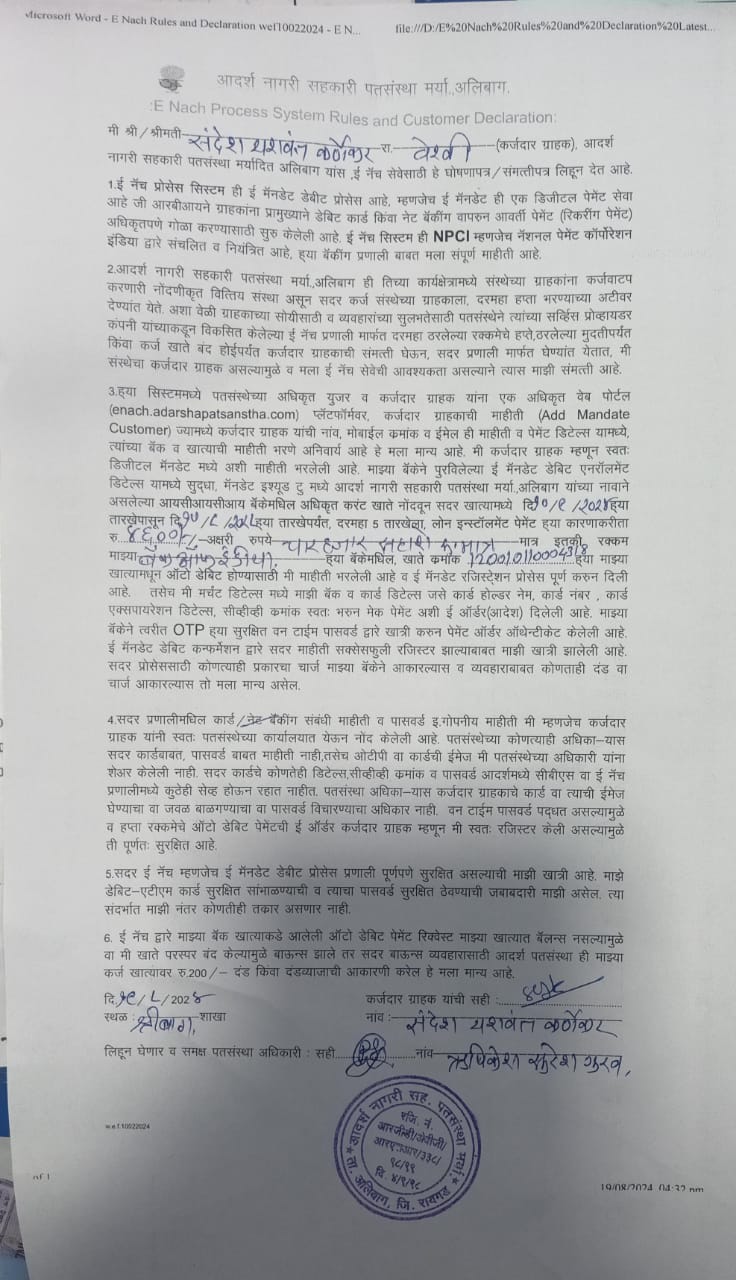 Microsoft Word - E Nach Rules and Declaration wef10022024 - E N... file:///D:/E%20Nach%20Rules%20and%20Declaration%20Latest...
आदर्श नागरी सहकारी पतसंस्था मर्या.,अलिबाग.
:E Nach Process System Rules and Customer Declaration:
मी श्री/श्रीमती संदेश यशवंत कर्णेकर रा. वेश्वी (कर्जदार ग्राहक), आदर्श
नागरी सहकारी पतसंस्था मर्यादित अलिबाग यांस ,ई नॅच सेवेसाठी हे घोषणापत्र/संमत्तीपत्र लिहून देत आहे.
1.ई नॅच प्रोसेस सिस्टम ही ई मॅनडेट डेबीट प्रोसेस आहे, म्हणजेच ई मॅनडेट ही एक डिजीटल पेमेंट सेवा
आहे जी आरबीआयने ग्राहकांना प्रामुख्याने डेबिट कार्ड किंवा नेट बॅकींग वापरुन आवर्ती पेमेंट (रिकरींग पेमेंट)
अधिकृतपणे गोळा करण्यासाठी सुरु केलेली आहे. ई नॅच सिस्टम ही NPCI म्हणजेच नॅशनल पेमेंट कॉर्पोरेशन
इंडिया द्वारे संचलित व नियंत्रित आहे, हया बॅकींग प्रणाली बाबत मला संपूर्ण माहीती आहे.
2.आदर्श नागरी सहकारी पतसंस्था मर्या.,अलिबाग ही तिच्या कार्यक्षेत्रामध्ये संस्थेच्या ग्राहकांना कर्जवाटप
करणारी नोंदणीकृत वित्तिय संस्था असून सदर कर्ज संस्थेच्या ग्राहकाला, दरमहा हप्ता भरण्याच्या अटीवर
देण्यांत येते. अशा वेळी ग्राहकाच्या सोयीसाठी व व्यवहारांच्या सुलभतेसाठी पतसंस्थेने त्यांच्या सर्व्हिस प्रोव्हायडर
कंपनी यांच्याकडून विकसित केलेल्या ई नॅच प्रणाली मार्फत दरमहा ठरलेल्या रक्कमेचे हप्ते,ठरलेल्या मुदतीपर्यत
किंवा कर्ज खाते बंद होईपर्यत कर्जदार ग्राहकाची संमत्ती घेऊन, सदर प्रणाली मार्फत घेण्यांत येतात, मी
संस्थेचा कर्जदार ग्राहक असल्यामुळे व मला ई नॅच सेवेची आवश्यकता असल्याने त्यास माझी संमत्ती आहे.
3.हया सिस्टममध्ये पतसंस्थेच्या अधिकृत युजर व कर्जदार ग्राहक यांना एक अधिकृत वेब पोर्टल
(enach.adarshapatsanstha.com) प्लॅटफॉर्मवर, कर्जदार ग्राहकाची माहीती (Add Mandate
Customer) ज्यामध्ये कर्जदार ग्राहक यांची नांव, मोबाईल कमांक व ईमेल ही माहीती व पेमेंट डिटेल्स यामध्ये,
त्यांच्या बॅक व खात्याची माहीती भरणे अनिवार्य आहे हे मला मान्य आहे. मी कर्जदार ग्राहक म्हणून स्वतः
डिजीटल मॅनडेट मध्ये अशी माहीती भरलेली आहे. माझ्या बॅकेने पुरविलेल्या ई मॅनडेट डेबिट एनरॉलमेंट
डिटेल्स यामध्ये सुद्धा, मॅनडेट इश्यूड टु मध्ये आदर्श नागरी सहकारी पतसंस्था मर्या.,अलिबाग यांच्या नावाने
असलेल्या आयसीआयसीआय बॅकेमधिल अधिकृत करंट खाते नोंदवून सदर खात्यामध्ये दि /२०२४हया
तारखेपासून दि हया तारखेपर्यंत, दरमहा 5 तारखेला, लोन इन्स्टॉलमेंट पेमेंट हया कारणाकरीता
रु. ४६००/-/-अक्षरी रुपये चार हजार सहाशे रु मात्र मात्र इतकी रक्कम
माझ्या बँक ऑफ इंडीया. हया बॅकेमधिल, खाते कमांक हया माझ्या
खात्यामधून ऑटो डेबिट होण्यासाठी मी माहीती भरलेली आहे व ई मॅनडेट रजिस्ट्रेशन प्रोसेस पूर्ण करुन दिली
आहे. तसेच मी मर्चंट डिटेल्स मध्ये माझी बॅक व कार्ड डिटेल्स जसे कार्ड होल्डर नेम, कार्ड नंबर , कार्ड
एक्सपायरेशन डिटेल्स, सीव्हीव्ही कमांक स्वतः भरुन मेक पेमेंट अशी ई ऑर्डर(आदेश) दिलेली आहे. माझ्या
बॅकेने त्वरीत OTP हया सुरक्षित वन टाईम पासवर्ड द्वारे खात्री करुन पेमेंट ऑर्डर ऑथेन्टीकेट केलेली आहे.
ई मॅनडेट डेबिट कन्फर्मेशन द्वारे सदर माहीती सक्सेसफुली रजिस्टर झाल्याबाबत माझी खात्री झालेली आहे.
सदर प्रोसेससाठी कोणत्याही प्रकारचा चार्ज माझ्या बॅकेने आकारल्यास व व्यवहाराबाबत कोणताही दंड वा
चार्ज आकारल्यास तो मला मान्य असेल.
4.सदर प्रणालीमधिल कार्ड/नेट बॅकींग संबंधी माहीती व पासवर्ड इ.गोपनीय माहीती मी म्हणजेच कर्जदार
ग्राहक यांनी स्वतः पतसंस्थेच्या कार्यालयात येऊन नोंद केलेली आहे. पतसंस्थेच्या कोणत्याही अधिका–यास
सदर कार्डबाबत, पासवर्ड बाबत माहीती नाही,तसेच ओटीपी वा कार्डची ईमेज मी पतसंस्थेच्या अधिकारी यांना
शेअर केलेली नाही. सदर कार्डचे कोणतेही डिटेल्स,सीव्हीव्ही कमांक व पासवर्ड आदर्शमध्ये सीबीएस वा ई नॅच
प्रणालीमध्ये कुठेही सेव्ह होऊन राहत नाहीत. पतसंस्था अधिका–यास कर्जदार ग्राहकाचे कार्ड वा त्याची ईमेज
घेण्याचा वा जवळ बाळगण्याचा वा पासवर्ड विचारण्याचा अधिकार नाही. वन टाईम पासवर्ड पद्धत असल्यामुळे
व हप्ता रक्कमेचे ऑटो डेबिट पेमेंटची ई ऑर्डर कर्जदार ग्राहक म्हणून मी स्वतः रजिस्टर केली असल्यामुळे
ती पूर्णतः सुरक्षित आहे.
5.सदर ई नॅच म्हणजेच ई मॅनडेट डेबीट प्रोसेस प्रणाली पूर्णपणे सुरक्षित असल्याची माझी खात्री आहे. माझे
डेबिट–एटीएम कार्ड सुरक्षित सांभाळण्याची व त्याचा पासवर्ड सुरक्षित ठेवण्याची जबाबदारी माझी असेल. त्या
संदर्भात माझी नंतर कोणतीही तकार असणार नाही.
6. ई नॅच द्वारे माझ्या बॅक खात्याकडे आलेली ऑटो डेबिट पेमेंट रिक्वेस्ट माझ्या खात्यात बॅलन्स नसल्यामुळे
वा मी खाते परस्पर बंद केल्यामुळे बाऊन्स झाले तर सदर बाऊन्स व्यवहारासाठी आदर्श पतसंस्था ही माझ्या
कर्ज खात्यावर रु.200/– दंड किंवा दंडव्याजाची आकारणी करेल हे मला मान्य आहे.
दि.१९/८/२०२४ कर्जदार ग्राहक यांची सही :
स्थळ: श्रीबाग, शाखा नांव: संदेश यशवंत कर्णेकर
लिहून घेणार व समक्ष पतसंस्था अधिकारी : सही नांव ऋषिकेश सुरेश गुरव,
w.e.f.10022024
आदर्श नागरी सह. पतसंस्था मर्या.
ता. अलिबाग, जि. रायगड
रजि. नं.
of 1 19/08/2024 04:32 pm